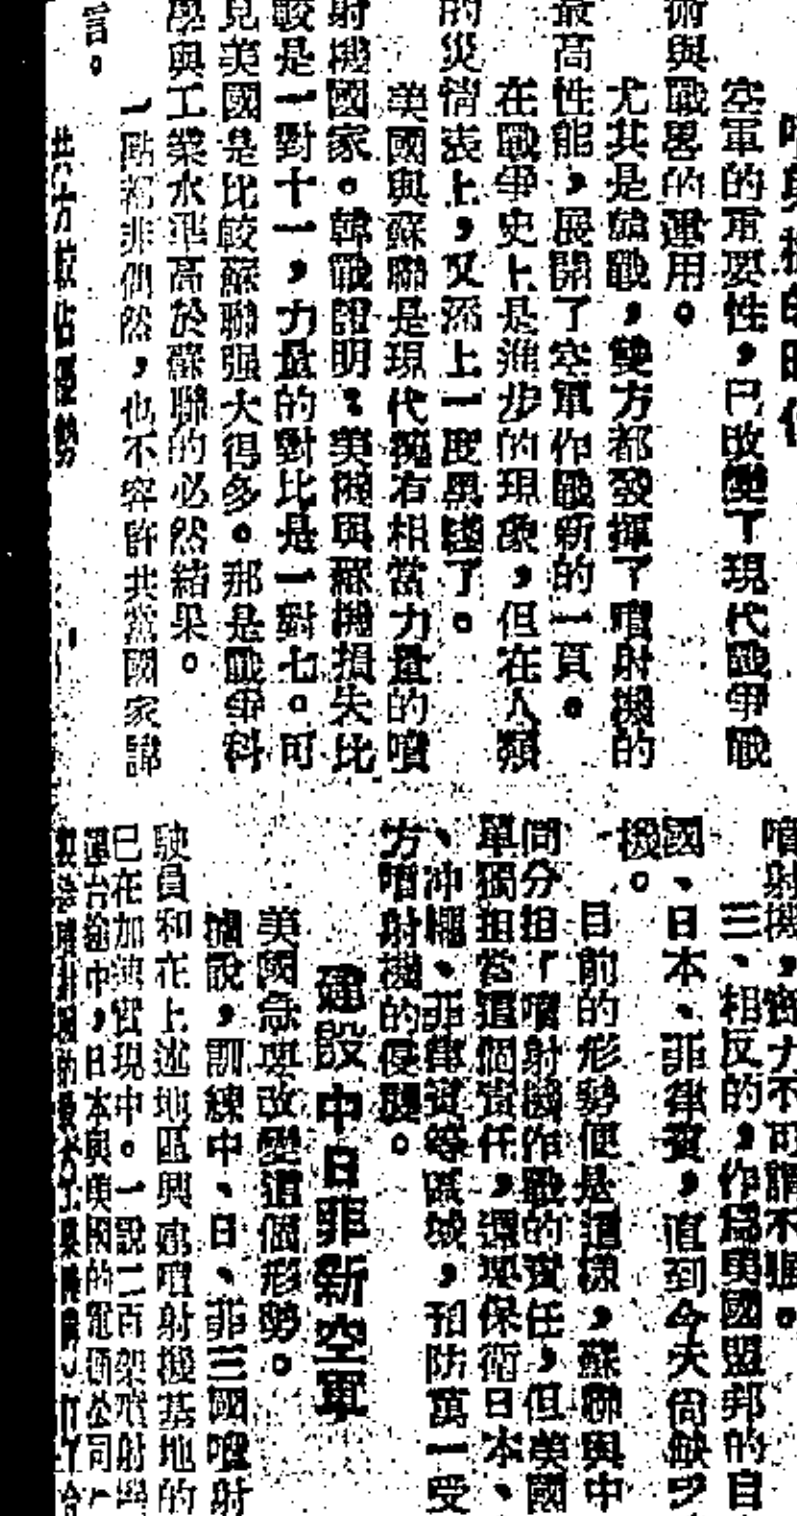 空軍的重要性，已改變了現代戰爭戰
術與戰畧的運用。
尤其是韓戰，雙方都發揮了噴射機的
最高性能，展開了空軍作戰新的一頁。
在戰爭史上是進步的現象，但在人類
的災情表上，又添上一度黑國了。
美國與蘇聯是現代擁有相當力量的噴
射機國家。韓戰證明：美機與蘇機損失比
較是一對十一，力量的對比是一對七。可
見美國是比較蘇聯强大得多。那是戰爭科
學與工業水準高於蘇聯的必然結果。
一點都非偶然，也不容許共黨國家諱
言。
共方數佔優勢
噴射機，實力不可謂不强。
三、相反的，作爲美國盟邦的自
國、日本、菲律賓，直到今天尙缺少
機。
目前的形勢便是這樣，蘇聯與中
同分担「噴射機作戰的責任，但美國
單獨担當這個責任，還要保衛日本、
、冲繩、菲律賓等區域，預防萬一受
方噴射機的侵襲。
建設中日菲新空軍
美國急要改變這個形勢。
據說，訓練中、日、菲三國噴射
駛員和在上述地區興建噴射機基地的
已在加速實現中。一說二百架噴射機
運台途中，日本與美國的